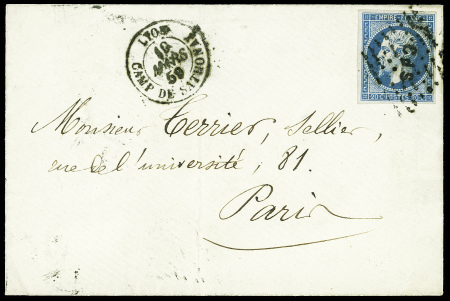 LYON
CAMP DE SATHONAY
18
MARS
59
EMPIRE
Monsieur Terrier, Sellier,
rue de l'université, 81.
Paris